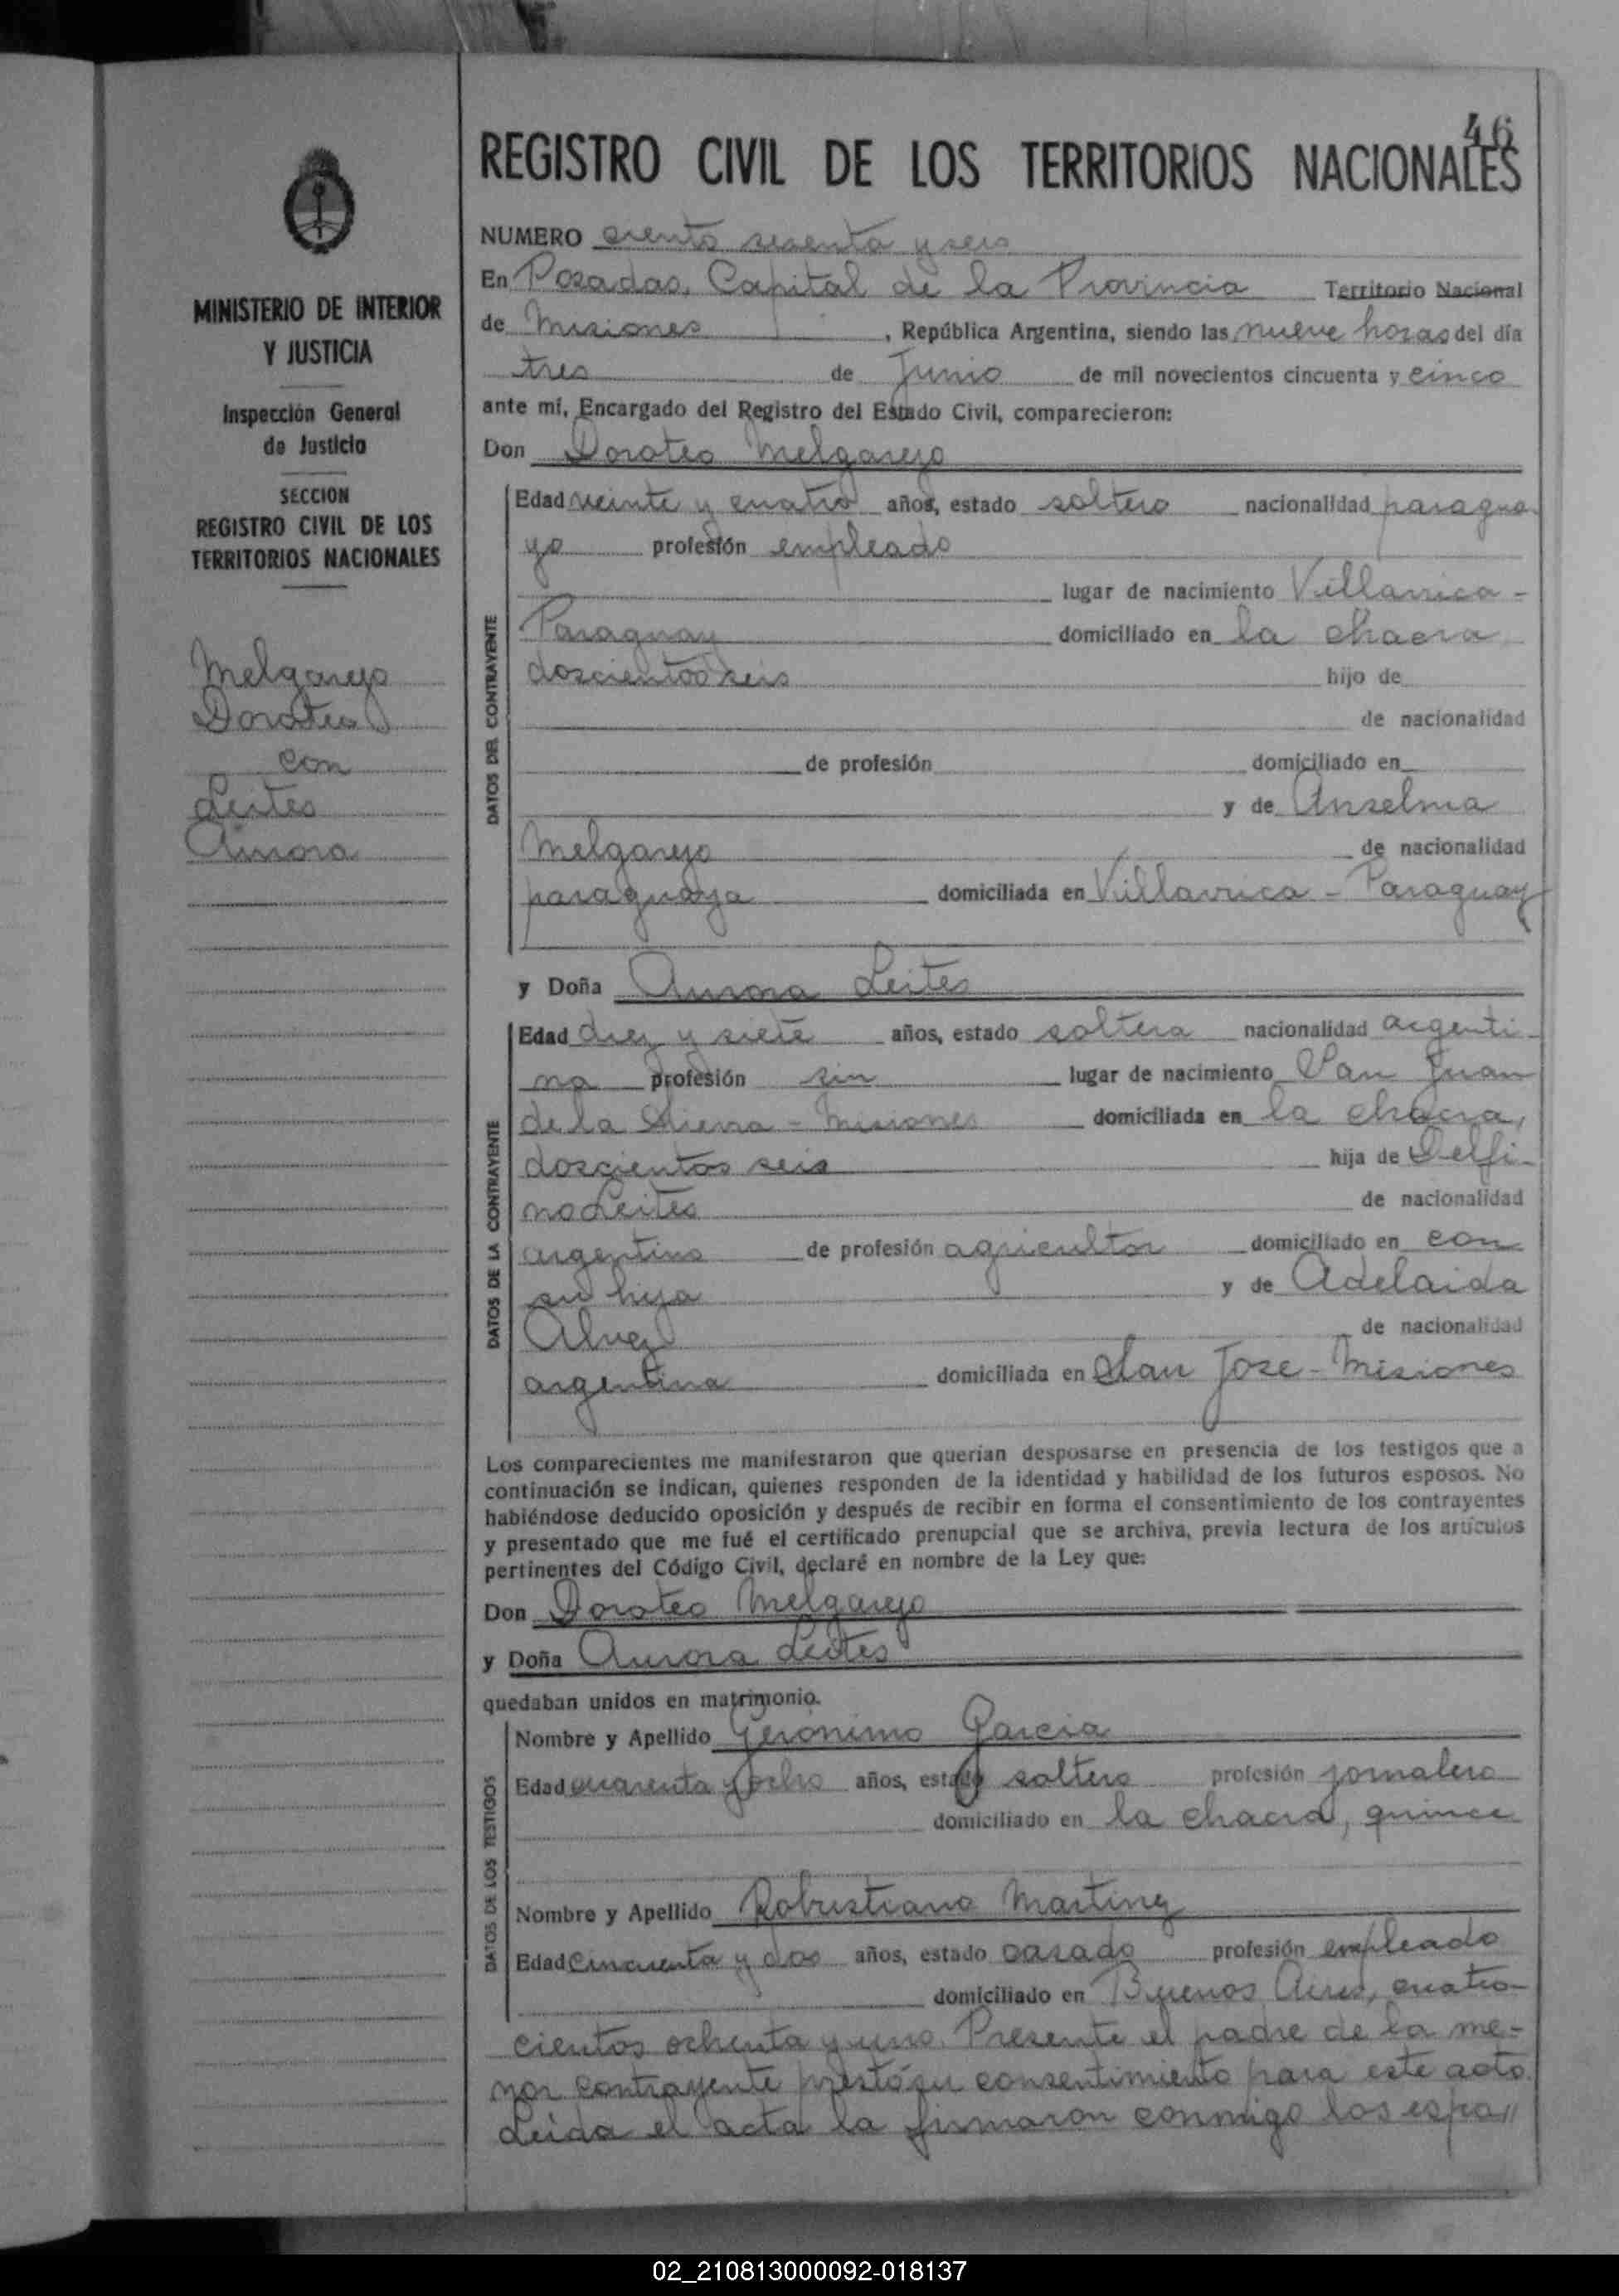 46
REGISTRO CIVIL DE LOS TERRITORIOS NACIONALES
MINISTERIO DE INTERIOR
Y JUSTICIA
Inspección General
de Justicia
SECCION
REGISTRO CIVIL DE LOS
TERRITORIOS NACIONALES
Melgarejo
Doroteo
con
Leites
Aurora
NUMERO ciento sesenta y seis
En Posadas, Capital de la Provincia Territorio Nacional
de Misiones, República Argentina, siendo las nueve horas del día
tres de Junio de mil novecientos cincuenta y cinco
ante mí, Encargado del Registro del Estado Civil, comparecieron:
Don Doroteo Melgarejo
DATOS DEL CONTRAYENTE
Edad veinte y cuatro años, estado soltero nacionalidad paragua
yo profesión empleado
lugar de nacimiento Villarrica -
Paraguay domiciliado en la chacra
doscientos seis hijo de
de nacionalidad
de profesión domiciliado en
y de Anselma
Melgarejo de nacionalidad
paraguaya domiciliada en Villarrica - Paraguay
y Doña Aurora Leites
DATOS DE LA CONTRAYENTE
Edad diez y siete años, estado soltera nacionalidad argenti-
na profesión sin lugar de nacimiento San Juan
de la Sierra - Misiones domiciliada en la chacra,
doscientos seis hija de Delfi-
no Leites de nacionalidad
argentino de profesión agricultor domiciliado en con
su hija y de Adelaida
Alvez de nacionalidad
argentina domiciliada en San Jose - Misiones
Los comparecientes me manifestaron que querían desposarse en presencia de los testigos que a
continuación se indican, quienes responden de la identidad y habilidad de los futuros esposos. No
habiéndose deducido oposición y después de recibir en forma el consentimiento de los contrayentes
y presentado que me fué el certificado prenupcial que se archiva, previa lectura de los artículos
pertinentes del Código Civil, declaré en nombre de la Ley que:
Don Doroteo Melgarejo
y Doña Aurora Leites
quedaban unidos en matrimonio.
DATOS DE LOS TESTIGOS
Nombre y Apellido Geronimo Garcia
Edad cuarenta y ocho años, estado soltero profesión jornalero
domiciliado en la chacra, quince
Nombre y Apellido Robustiano Martinez
Edad cincuenta y dos años, estado casado profesión empleado
domiciliado en Buenos Aires, cuatro-
cientos ochenta y uno. Presente el padre de la me-
nor contrayente prestó su consentimiento para este acto.
Leida el acta la firmaron conmigo los espo//
02_210813000092-018137